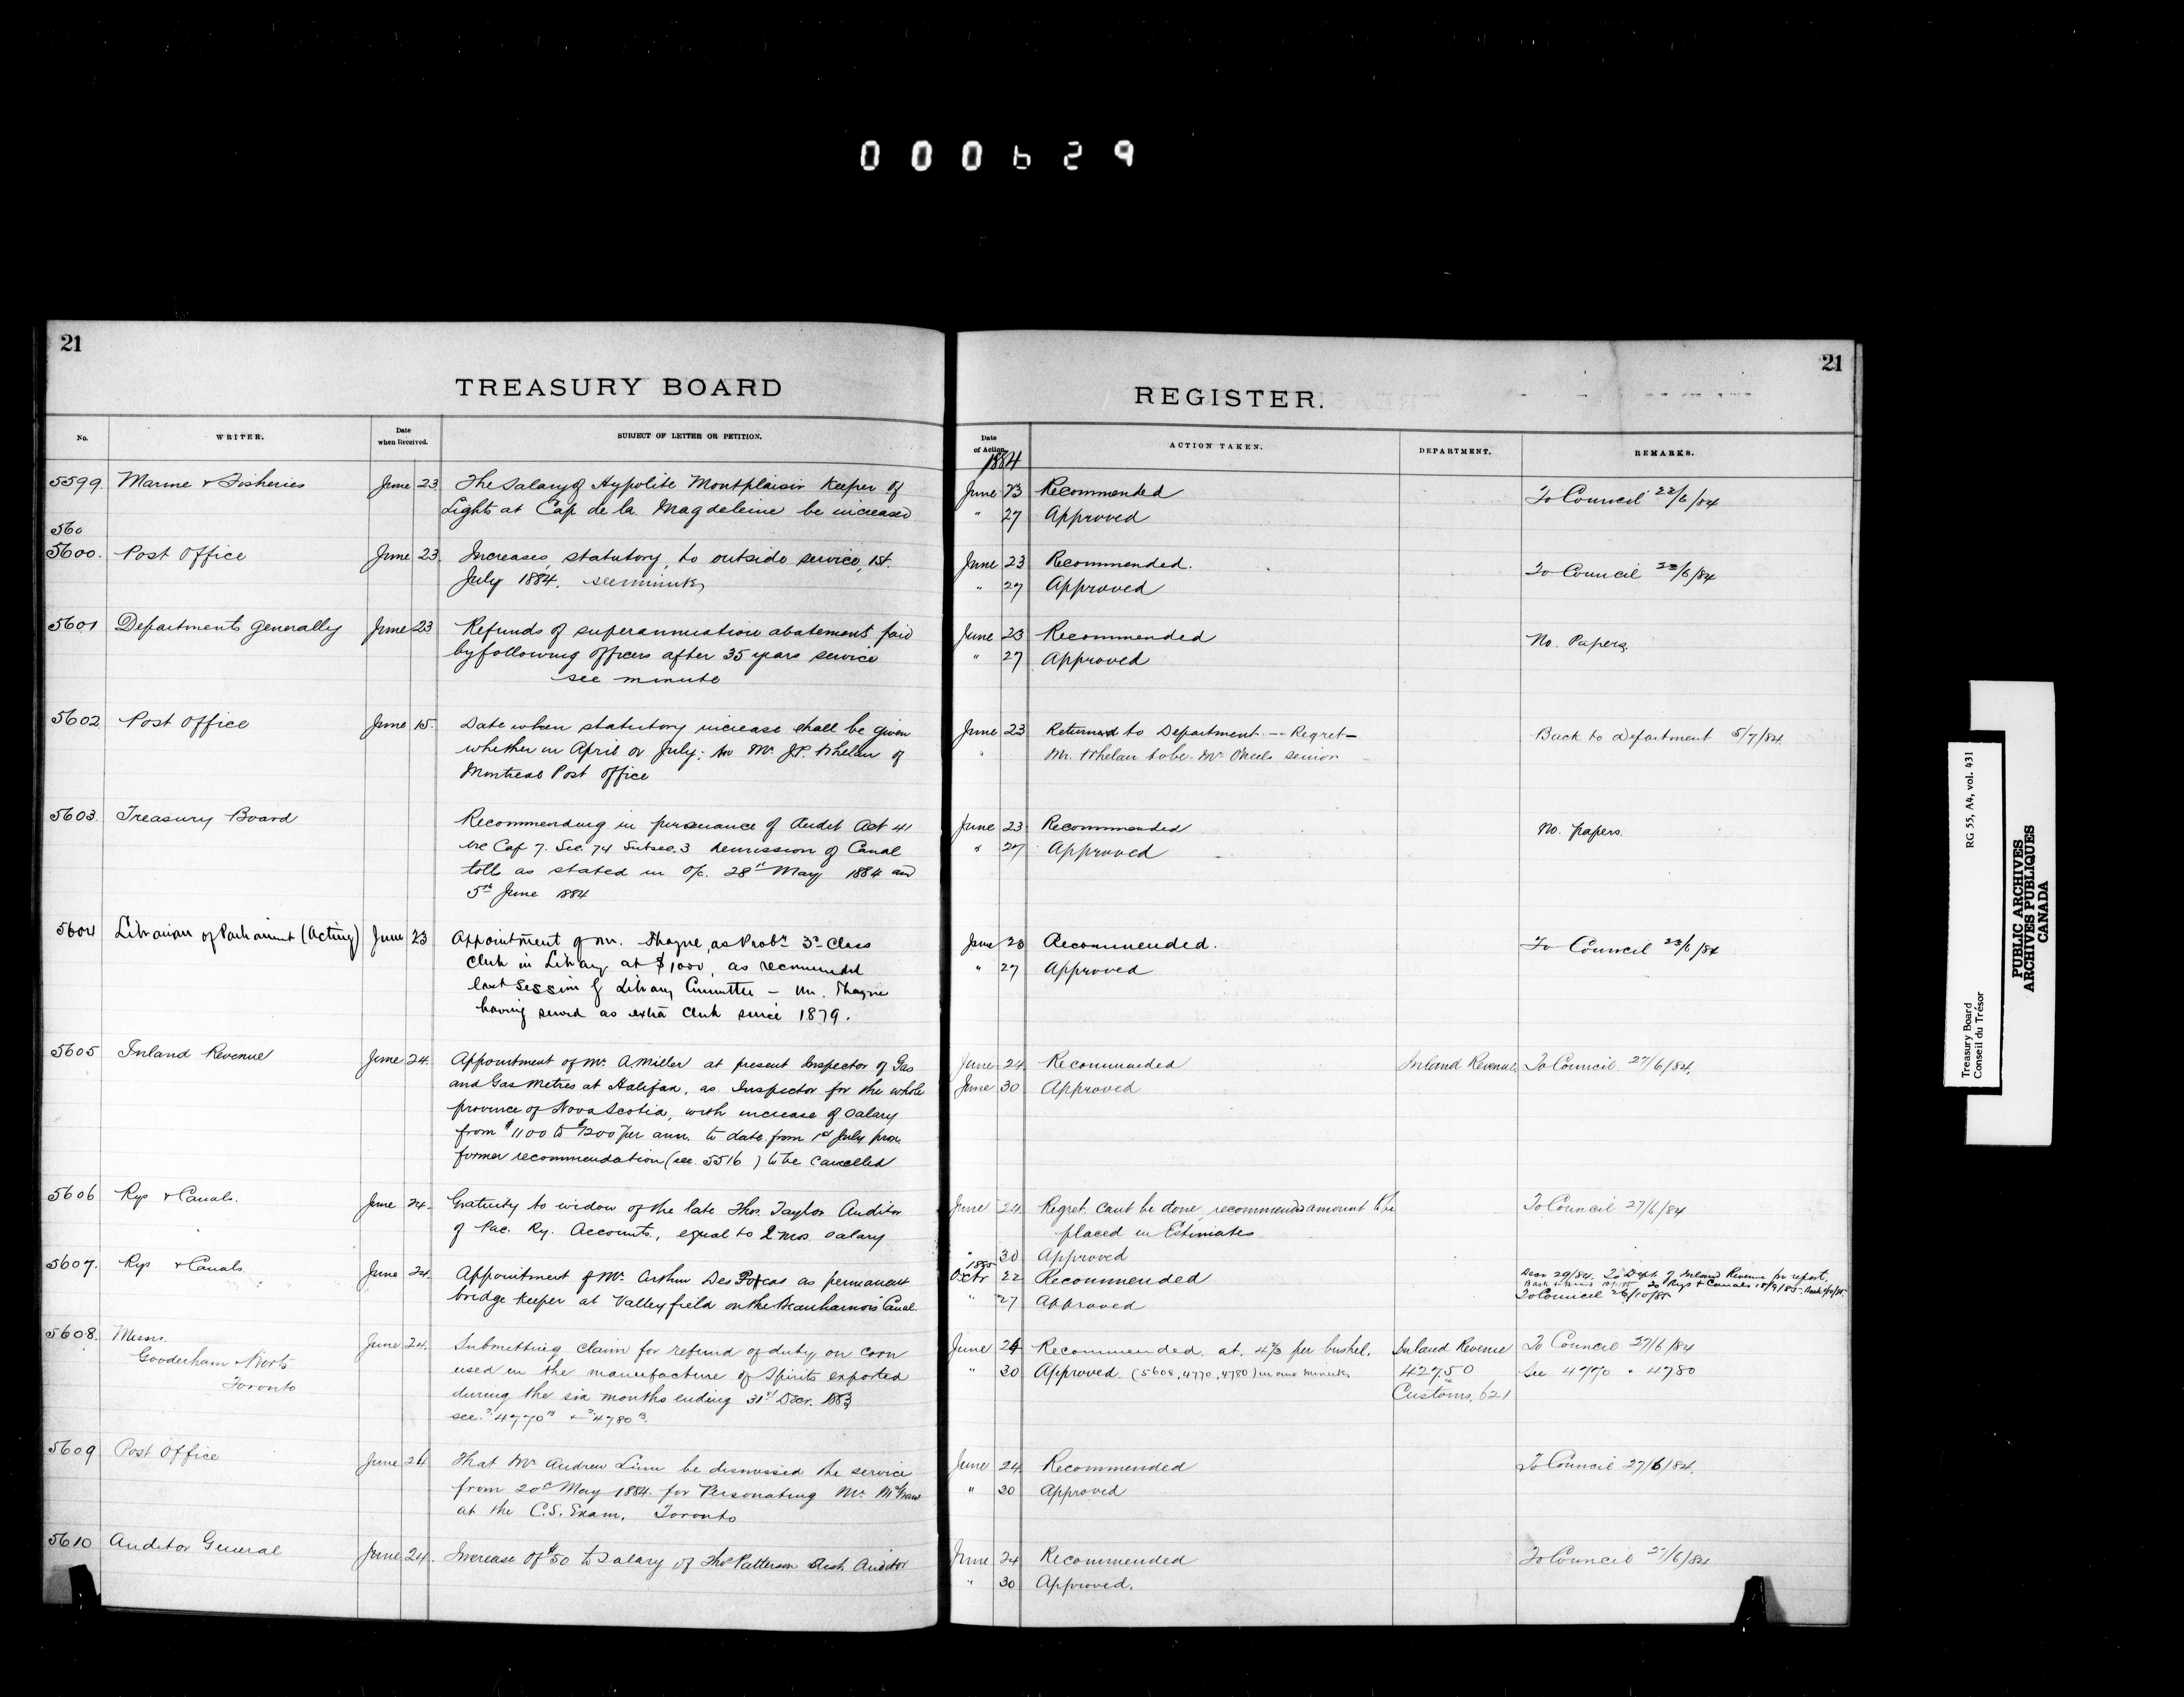 000629
21
TREASURY BOARD
No.
WRITER.
Date
when Received.
SUBJECT OF LETTER OR PETITION.
5599. Marine & Fisheries June 23 The Salary of Hypolite Montplaisir Keeper of
Lights at Cap de la Magdeleine be increased
560
5600. Post Office June 23. Increases, statutory, to outside service, 1st
July 1884. see minute
5601 Departments generally June 23 Refunds of superannuation abatement paid
by following officers after 35 years service
see minute
5602 Post Office June 15. Date when statutory increase shall be given
whether in April or July: to Mr. J.P. Whelan of
Montreal Post Office
5603. Treasury Board Recommending in pursuance of Audit Act 41
Vic Cap 7. Sec. 74 Subsec. 3 remission of Canal
tolls as stated in O/c. 28th May 1884 and
5th June 1884
5604 Librarian of Parliament (Acting) June 23 Appointment of Mr. Thayne, as Probr. 3rd Class
Clerk in Library at $1000, as recommended
last session by Library Committee - Mr. Thayne
having served as extra Clerk since 1879.
5605 Inland Revenue June 24. Appointment of Mr. A Miller at present Inspector of Gas
and Gas Metres at Halifax, as Inspector for the whole
province of Nova Scotia, with increase of salary
from $1100 to $1200 per ann. to date from 1st July prox.
former recommendation (see 5516) to be cancelled
5606 Rys & Canals. June 24. Gratuity to widow of the late Thos. Taylor Auditor
of Pac. Ry. Accounts, equal to 2 mos. salary
5607. Rys & Canals June 24. Appointment of Mr. Arthur Des as permanent
bridge keeper at Valleyfield on the Beauharnois Canal
5608. Messrs.
Gooderham & Worts
Toronto
June 24. Submitting claim for refund of duty on corn
used in the manufacture of Spirits exported
during the six months ending 31st Decr. 1883
see 4770 & 4780.
5609 Post Office June 24 That Mr Andrew Linn be dismissed the service
from 20th May 1884 for Personating Mr.
at the C.S. Exam. Toronto
5610 Auditor General June 24. Increase of $50 to salary of Thos Patterson Asst. Auditor
21
REGISTER.
Date
of Action.
ACTION TAKEN.
DEPARTMENT.
REMARKS.
1884
June 23 Recommended To Council 23/6/84
" 27 Approved
June 23 Recommended. To Council 23/6/84
" 27 Approved
June 23 Recommended No. Papers.
" 27 Approved
June 23 Returned to Department -- Regret - Back to Department 5/7/84.
" Mr. Whelan to be Mr. O'Neils senior
June 23 Recommended No. papers.
" 27 Approved
June 23 Recommended. To Council 23/6/84
" 27 Approved
June 24 Recommended Inland Revenue To Council 27/6/84.
June 30 Approved
June 24 Regret cant be done, recommended amount to be To Council 27/6/84
placed in Estimates
" 30 Approved
1885
Octr 22 Recommended Decr 29/84. To Dept. of Inland Revenue for report.
To Rys & Canals
" 27 Approved To Council 26/10/85
June 24 Recommended. at 4 per bushel. Inland Revenue To Council 27/6/84
" 30 Approved. (5608, 4770, 4780) in one minute 42750 See 4770 & 4780
Customs, 621
June 24 Recommended To Council 27/6/84.
" 30 Approved
June 24 Recommended To Council 27/6/84
" 30 Approved.
Treasury Board
Conseil du Trésor
RG 55, A4, vol. 431
PUBLIC ARCHIVES
ARCHIVES PUBLIQUES
CANADA